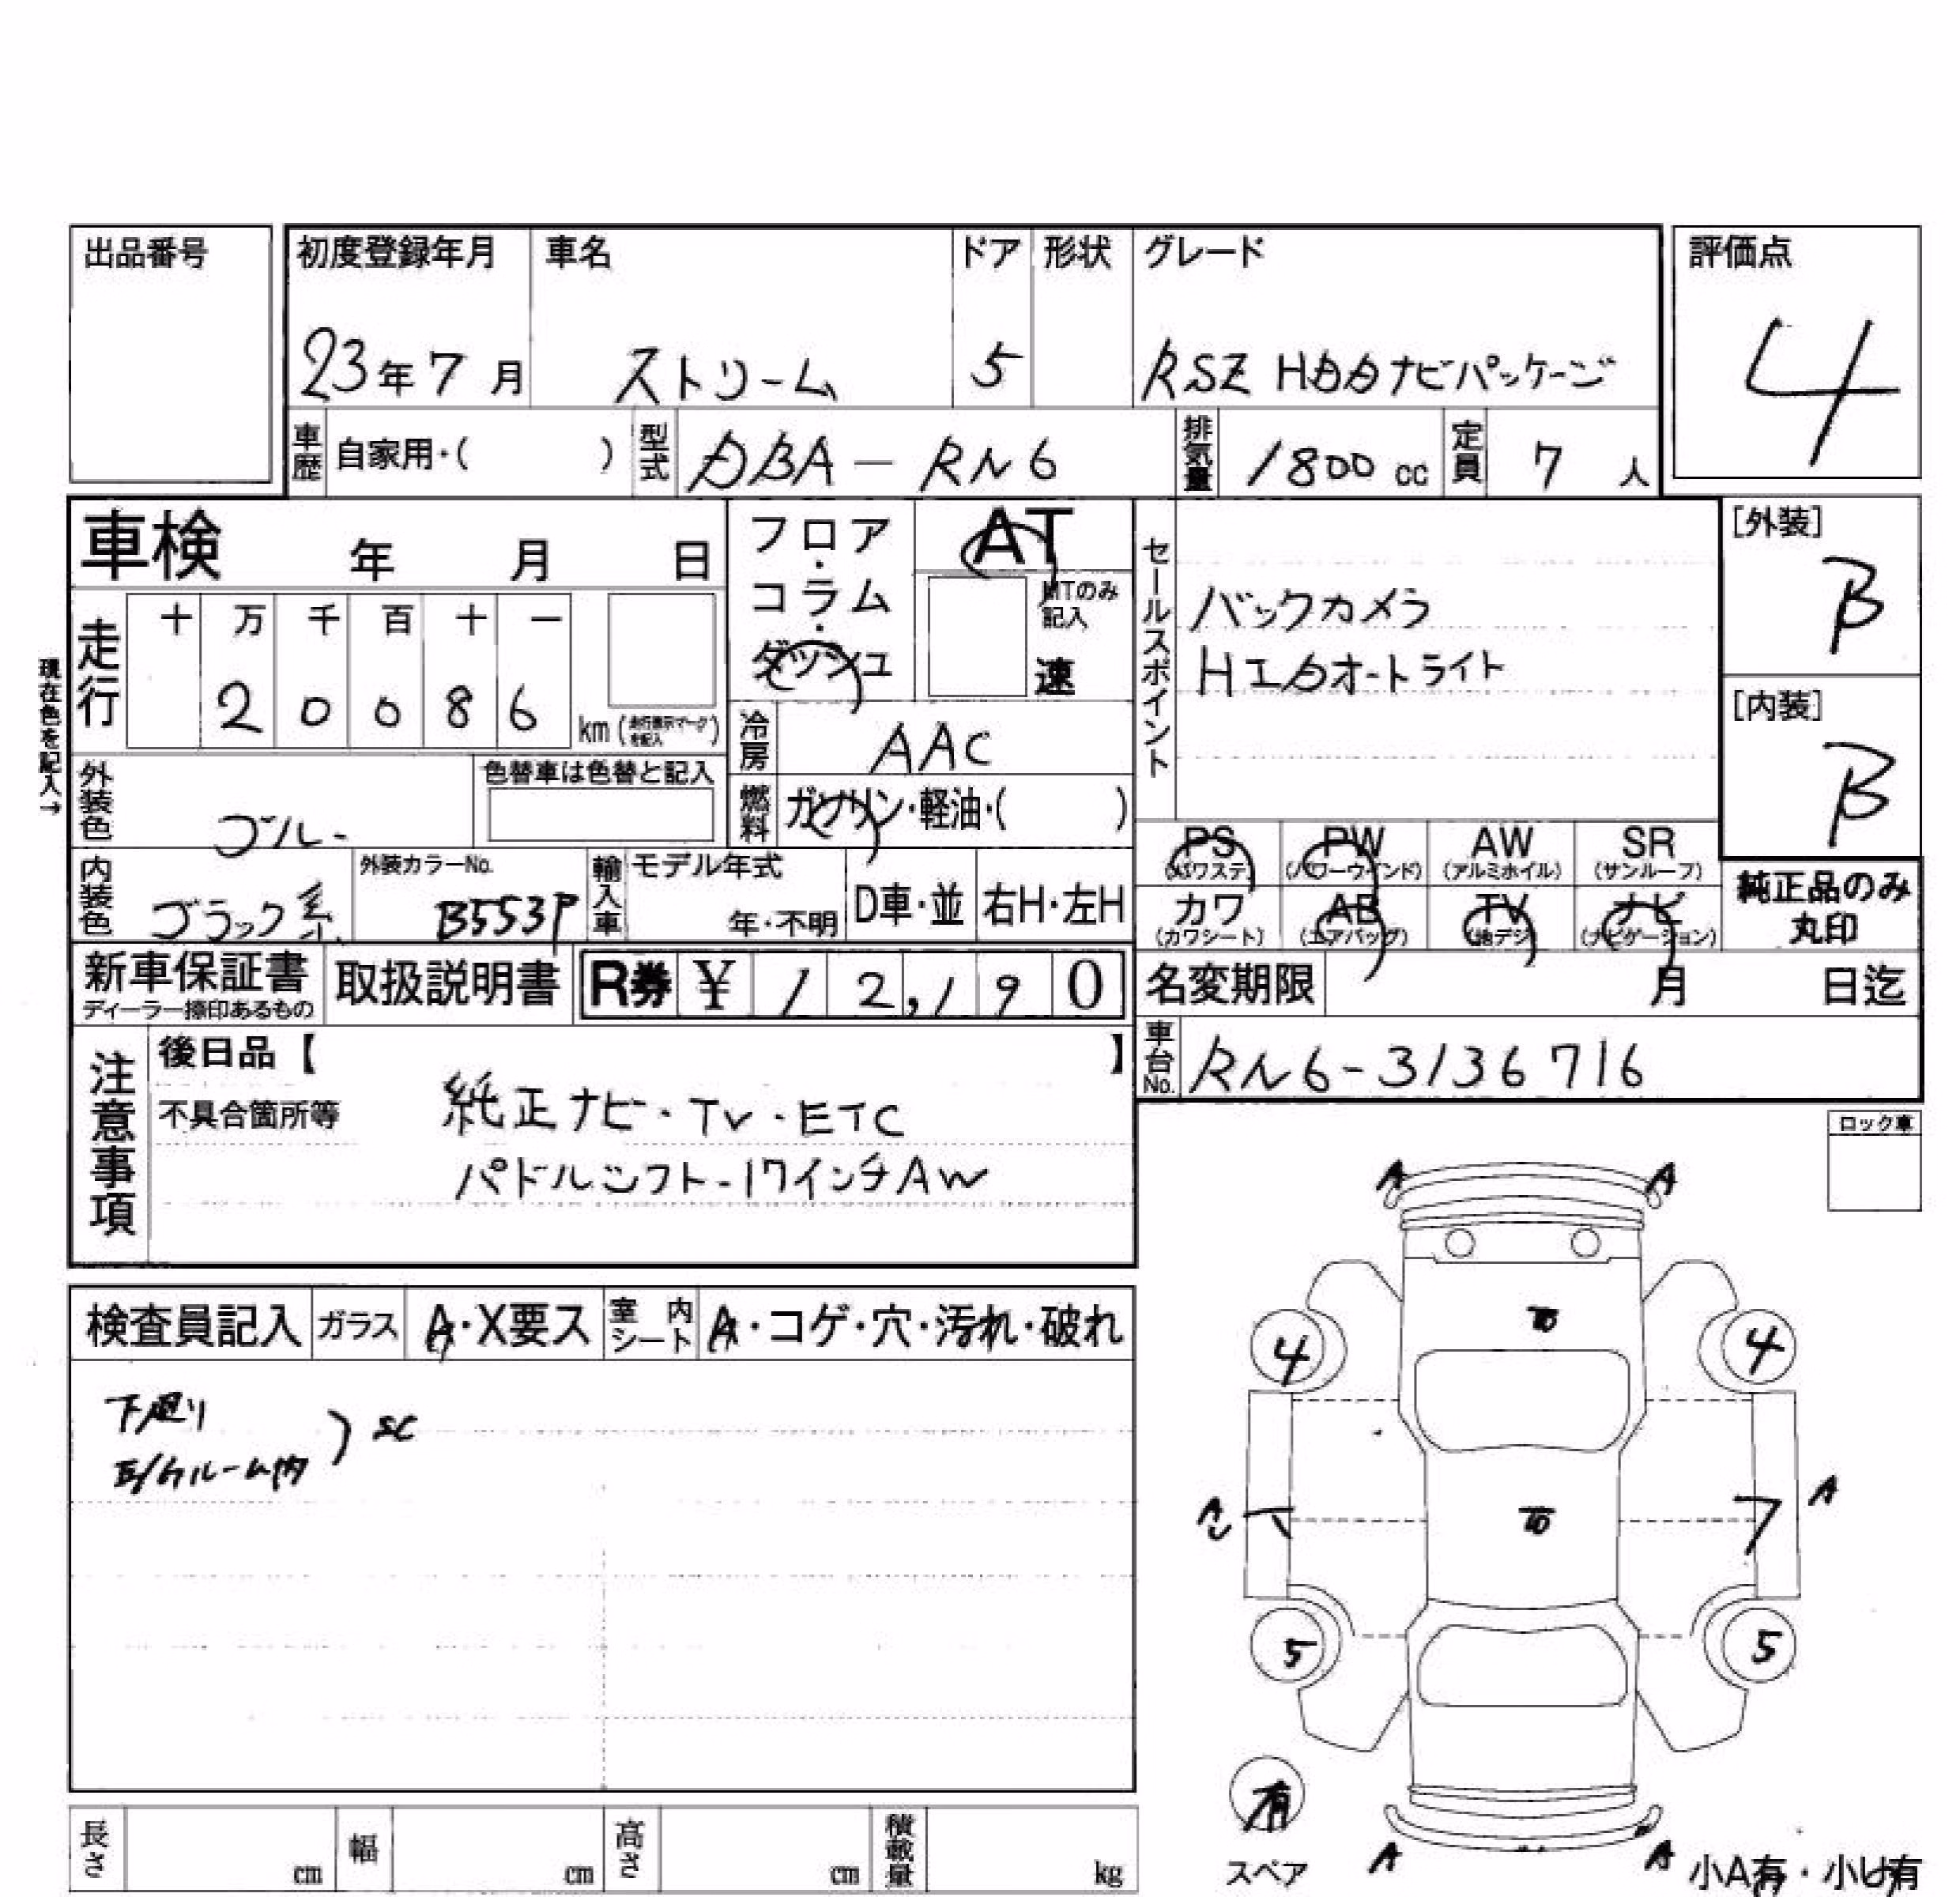 出品番号
初度登録年月 車名 ドア 形状 グレード
評価点
23年7月 ストリーム 5 RSZ HDDナビパッケージ
4
車歴 自家用・( ) 型式 DBA-RN6 排気量 1800 cc 定員 7 人
車検 年 月 日
フロア・コラム・ダッシュ
AT
MTのみ記入
速
セールスポイント
バックカメラ
HIDオートライト
[外装]
B
[内装]
B
現在色を記入→
走行 十 万 千 百 十 一
2 0 0 8 6 km (走行表示マークを記入)
冷房 AAC
外装色 ブルー 色替車は色替と記入
燃料 ガソリン・軽油・( )
PS (パワステ) PW (パワーウインド) AW (アルミホイル) SR (サンルーフ)
カワ (カワシート) AB (エアバッグ) TV (地デジ) ナビ (ナビゲーション)
純正品のみ
丸印
内装色 ブラック系 外装カラーNo. B553P 輸入車 モデル年式 年・不明 D車・並 右H・左H
新車保証書 ディーラー捺印あるもの 取扱説明書 R券 ¥ 12,190
名変期限 月 日迄
車台No. RN6-3136716
注意事項
後日品【 】
不具合箇所等
純正ナビ・TV・ETC
パドルシフト-17インチAW
ロック車
検査員記入 ガラス A・X要ス 室内シート A・コゲ・穴・汚れ・破れ
下廻り
E/Gルーム内 ) SC
A A
4 4
A A
5 5
有
スペア
A A
小A有・小U有
長さ cm 幅 cm 高さ cm 積載量 kg